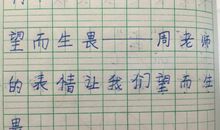 望而生畏——周老师
的表情让我们望而生
畏